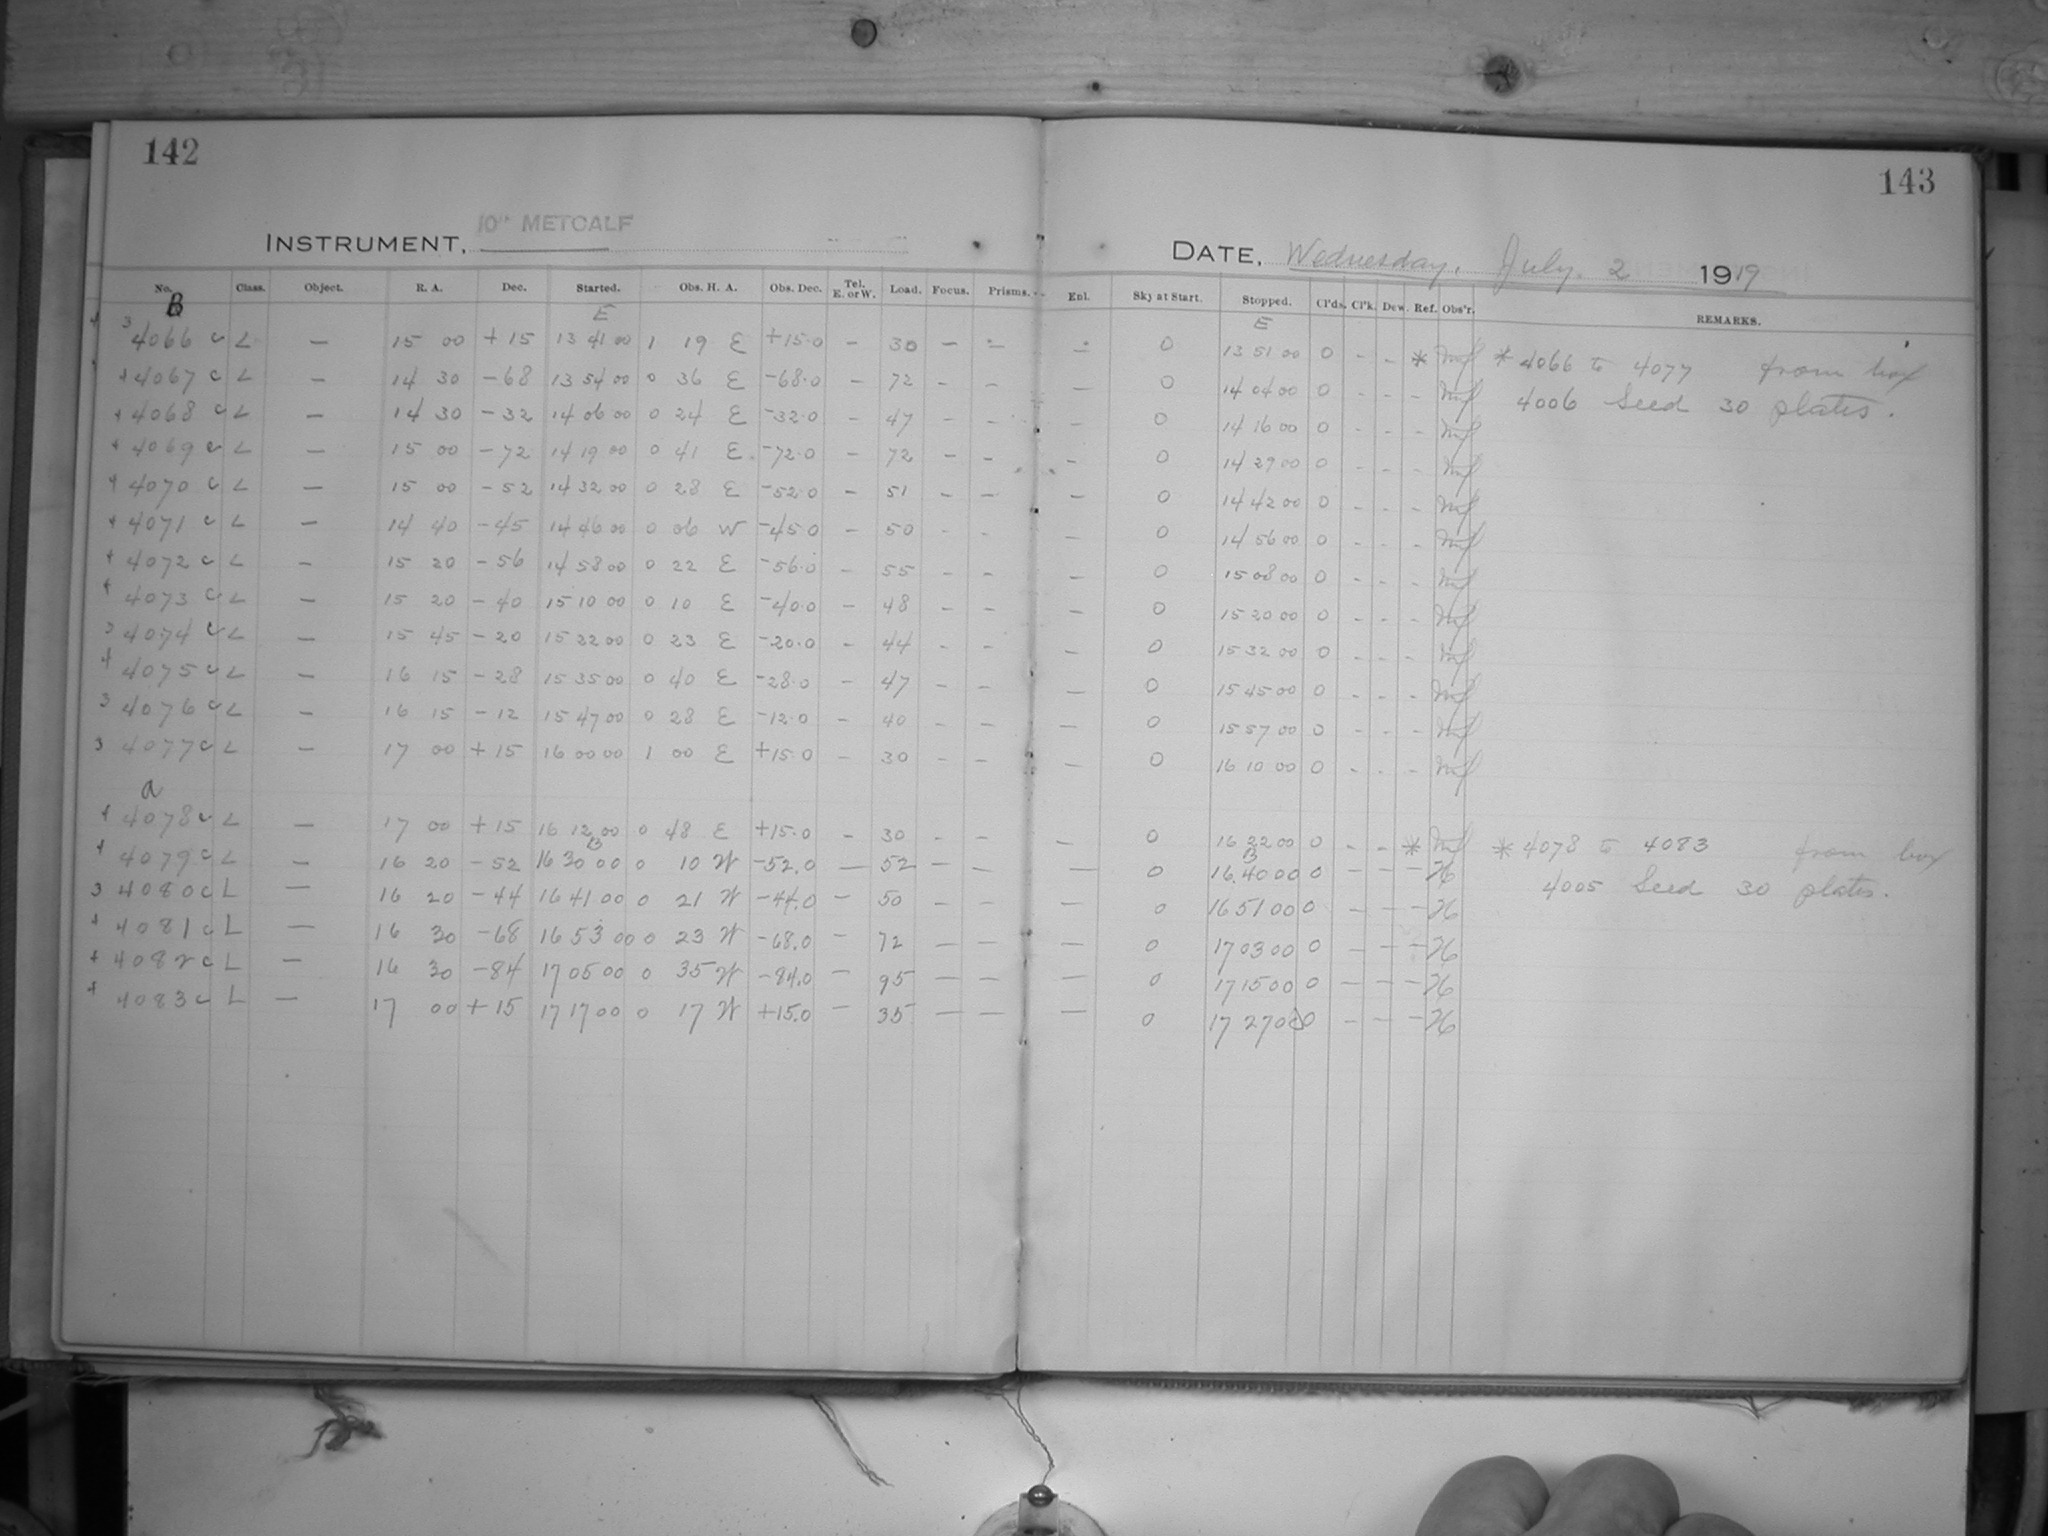 142
143
10" METCALF
INSTRUMENT,
DATE, Wednesday, July 2 1919
No. Class. Object. R. A. Dec. Started. Obs. H. A. Obs. Dec. Tel. E. or W. Load. Focus. Prisms. Enl. Sky at Start. Stopped. Cl'ds. Cl'k. Dew. Ref. Obs'r. REMARKS.
B E E
3 4066 c L — 15 00 +15 13 41 00 1 19 E +15.0 — 30 — — — 0 13 51 00 0 - - * * 4066 to 4077 from box
4067 c L — 14 30 -68 13 54 00 0 36 E -68.0 — 72 - - — 0 14 04 00 0 - - - 4006 Seed 30 plates.
4068 c L — 14 30 -32 14 06 00 0 24 E -32.0 — 47 - - - 0 14 16 00 0 - - -
4069 c L — 15 00 -72 14 19 00 0 41 E -72.0 — 72 - - - 0 14 29 00 0 - - -
4070 c L — 15 00 -52 14 32 00 0 28 E -52.0 — 51 - - - 0 14 42 00 0 - - -
4071 c L — 14 40 -45 14 46 00 0 06 W -45.0 - 50 - - - 0 14 56 00 0 - - -
4072 c L — 15 20 -56 14 58 00 0 22 E -56.0 - 55 - - — 0 15 08 00 0 - - -
4073 c L — 15 20 -40 15 10 00 0 10 E -40.0 - 48 - - — 0 15 20 00 0 - - -
3 4074 c L — 15 45 -20 15 22 00 0 23 E -20.0 - 44 - - - 0 15 32 00 0 - - -
4075 c L — 16 15 -28 15 35 00 0 40 E -28.0 - 47 - - — 0 15 45 00 0 - - -
3 4076 c L — 16 15 -12 15 47 00 0 28 E -12.0 - 40 - - — 0 15 57 00 0 - - -
3 4077 c L — 17 00 +15 16 00 00 1 00 E +15.0 - 30 - - - 0 16 10 00 0 - - -
a
4078 c L — 17 00 +15 16 12 00 0 48 E +15.0 - 30 - - - 0 16 22 00 0 - - * * 4078 to 4083 from box
B B
4079 c L — 16 20 -52 16 30 00 0 10 W -52.0 — 52 — — — 0 16 40 00 0 — — — H 4005 Seed 30 plates.
3 4080 c L — 16 20 -44 16 41 00 0 21 W -44.0 — 50 - - — 0 16 51 00 0 — — — H
4081 c L — 16 30 -68 16 53 00 0 23 W -68.0 — 72 — — — 0 17 03 00 0 — — — H
4082 c L — 16 30 -84 17 05 00 0 35 W -84.0 — 95 — — — 0 17 15 00 0 — — — H
4083 c L — 17 00 +15 17 17 00 0 17 W +15.0 — 35 — — — 0 17 27 00 0 — — — H